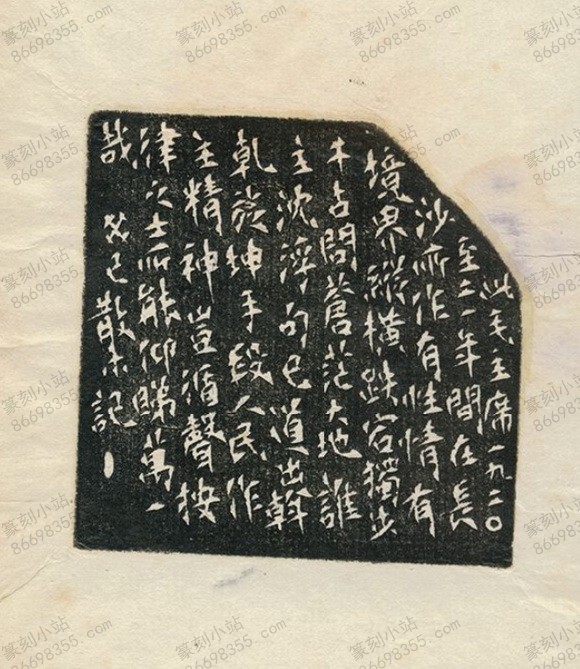 此毛主席一九二〇
至二一年間在長
沙所作有性情有
境界縱橫跌宕獨步
千古問蒼茫大地誰
主沈浮句已道出斡
乾旋坤手段人民作
主精神豈循聲按
律之士所能仰睇萬一
哉 癸巳散木記
篆刻小站
86698355.com